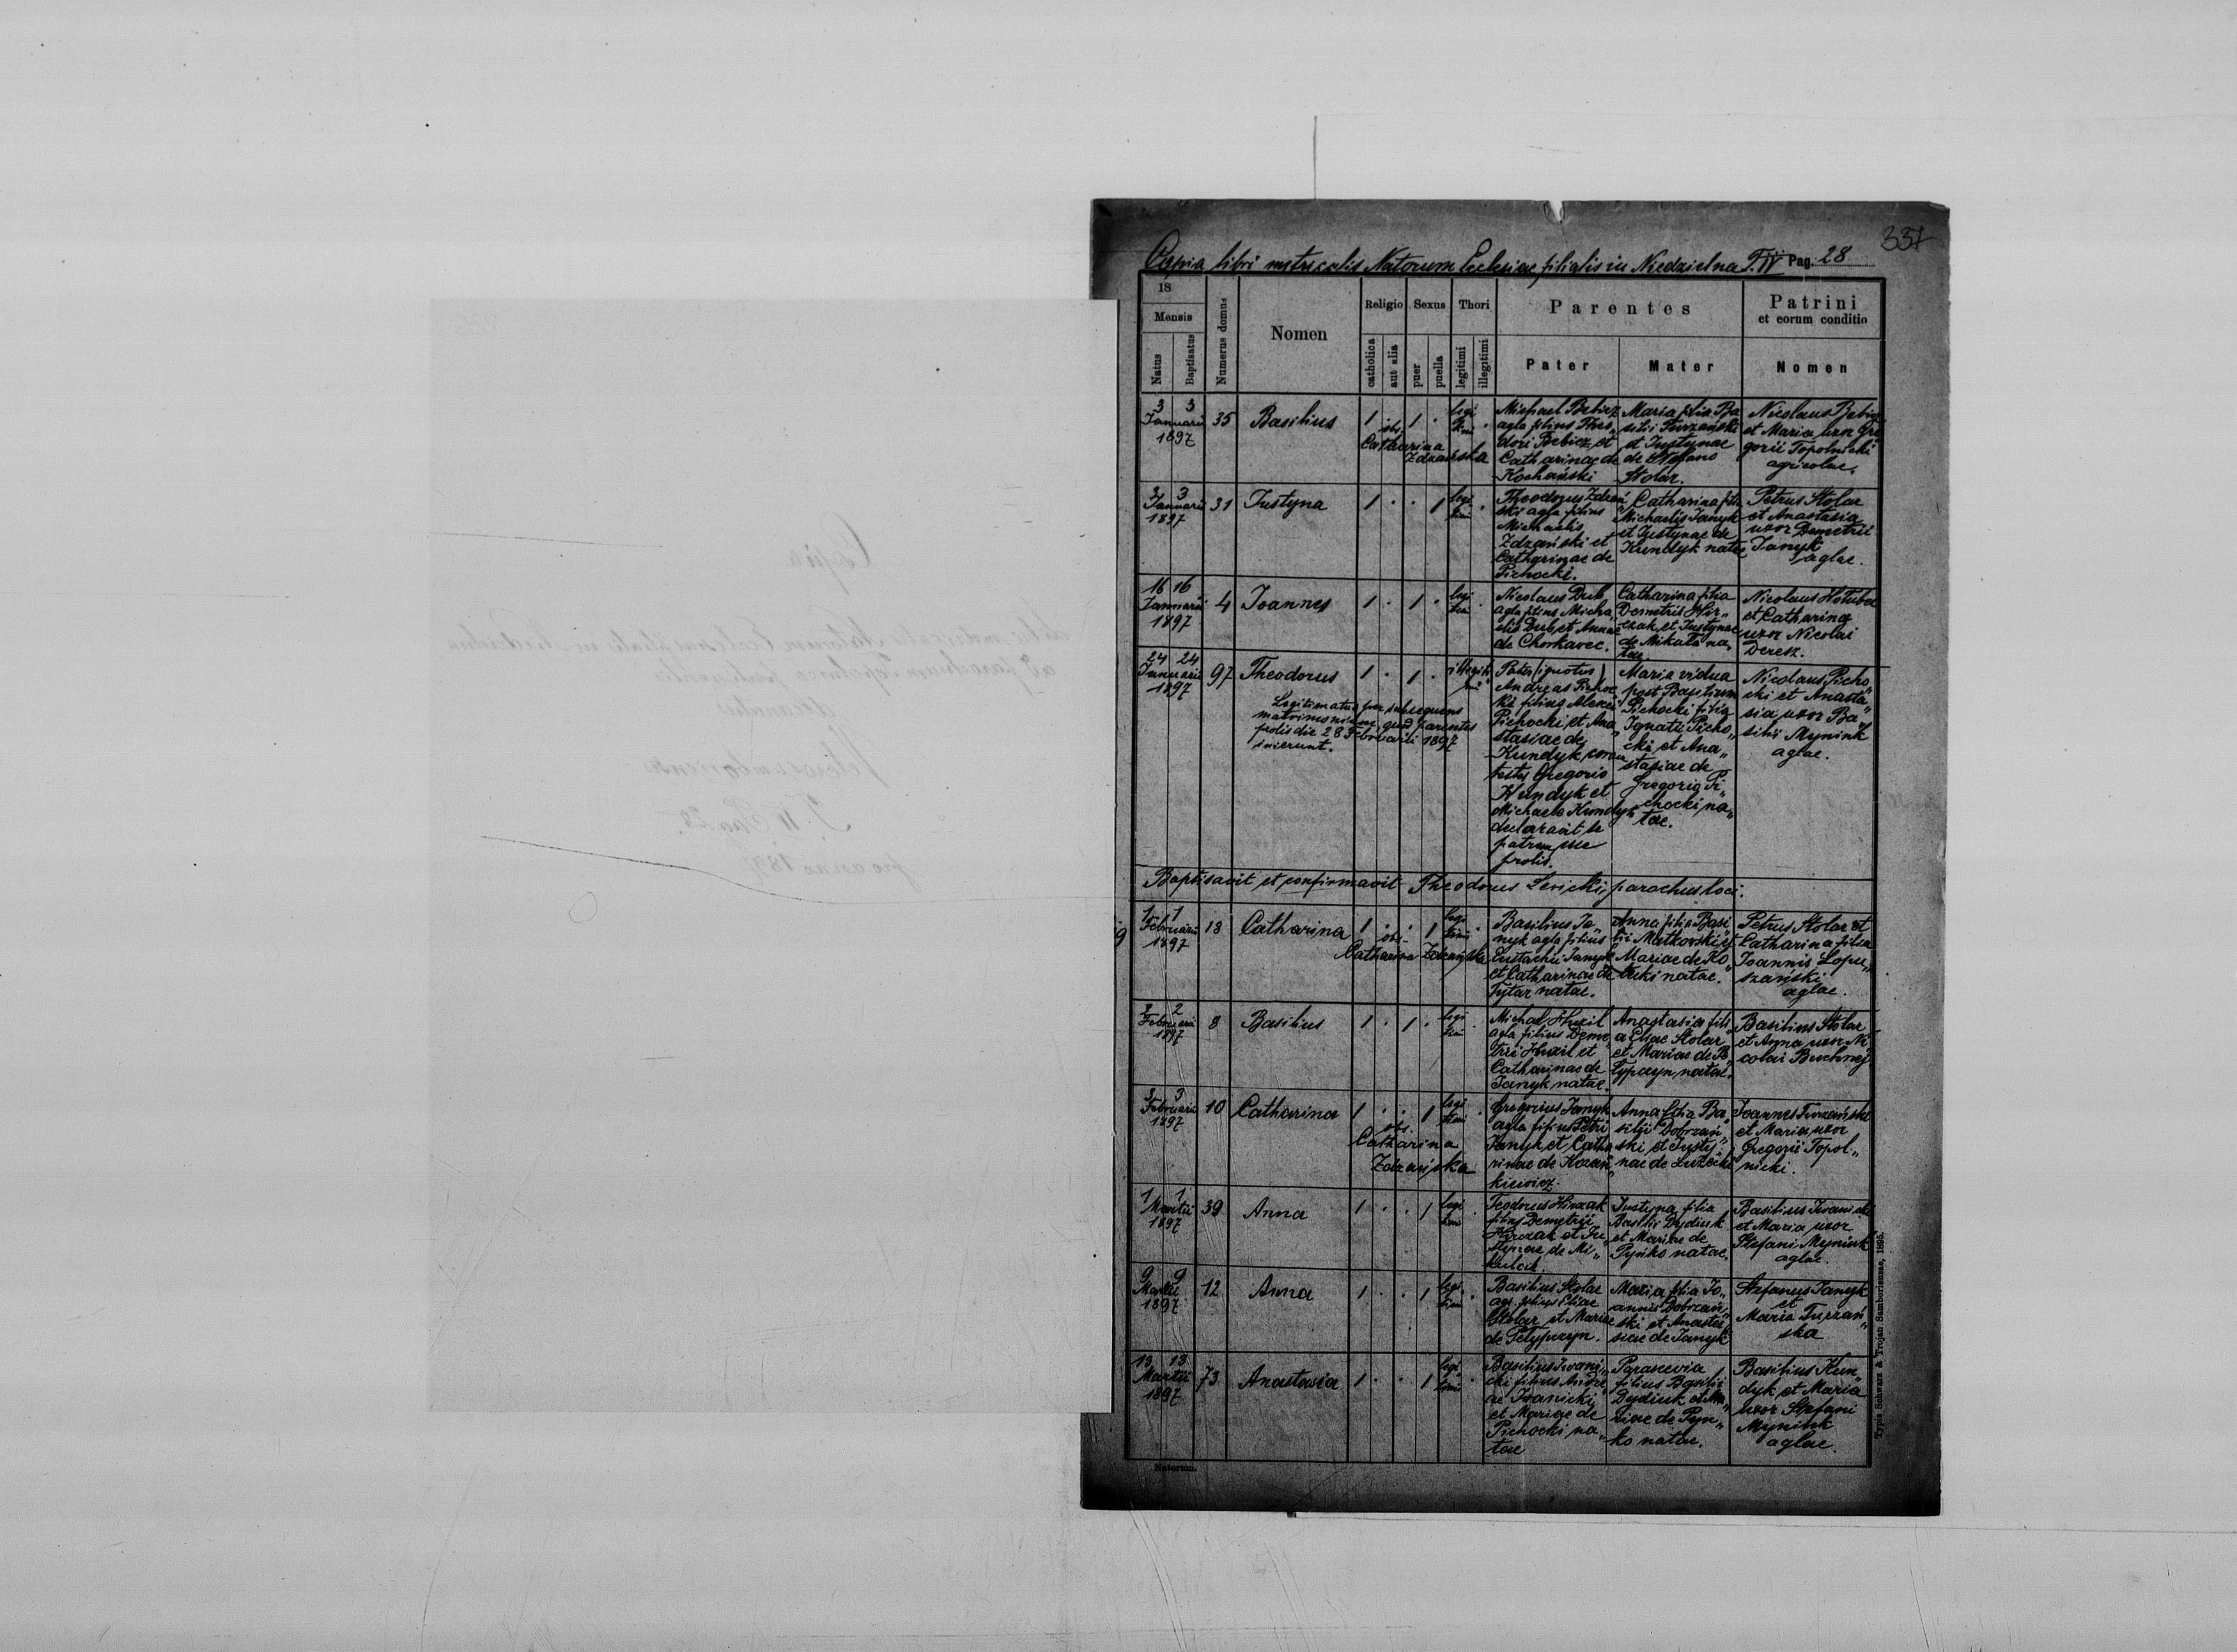 337
Copia libri metricalis Natorum Ecclesiae filialis in Niedzielna T. IV Pag. 28
18
Mensis
Natus
Baptisatus
Numerus domus
Nomen
Religio
catholica
aut alia
Sexus
puer
puella
Thori
legitimi
illegitimi
Parentes
Pater
Mater
Patrini
et eorum conditio
Nomen
3 3
Januarii
1897
35
Basilius
1 . 1 .
legi
timi
obs.
Catharina
Zdzańska
Michael Bebiez
agla filius Theo„
dori Bebiez et
Catharinae de
Kochański
Maria filia Ba
silii Turzański
et Justynae
de Stefano
Stolar.
Nicolaus Bebiez
et Maria uxor Gre
gorii Topolnicki
agricolae.
3 3
Januarii
1897
31
Justyna
1 . . 1
legi
timi
Theodorus Zdzań
ski agla filius
Michaelis
Zdzański et
Catharinae de
Pichocki.
Catharina filia
Michaelis Janyk
et Justynae de
Kundyk natae
Petrus Stolar
et Anastasia
uxor Demetrii
Janyk
aglae.
16 16
Januarii
1897
4
Joannes
1 . 1 .
legi
timi
Nicolaus Dub
agla filius Micha„
elis Dub et Annae
de Chorkavec.
Catharina filia
Demetrii Hir„
czak et Justynae
de Mikuła na„
tae.
Nicolaus Hołubec
et Catharina
uxor Nicolai
Deresz.
24 24
Januarii
1897
97
Theodorus
1 . 1 .
illegiti
mi
Legitimatus per subsequens
matrimonium, quod parentes
prolis die 28 Februarii 1897
inierunt.
Pater (ignotus)
Andreas Pichoc
ki filius Alexii
Pichocki et Ana„
stasiae de
Kundyk coram
testes Gregorio
Kundyk et
Michaele Kundyk
declaravit se
patrem esse
prolis.
Maria vidua
post Basilium
Pichocki filia
Ignatii Picho„
cki et Ana„
stasiae de
Gregorio Pi„
chocki na„
tae.
Nicolaus Picho„
cki et Anasta„
sia uxor Ba„
silii Mynink
aglae.
Baptisavit et confirmavit Theodorus Sericki, parochus loci.
1 1
Februarii
1897
18
Catharina
1 . . 1
legi
timi
obs.
Catharina Zdzańska
Basilius Ja„
nyk agla filius
Eustachii Janyk
et Catharinae de
Tytar natae.
Anna filia Basi
lii Matkovski et
Mariae de Ko„
ecki natae.
Petrus Stolar et
Catharina filia
Joannis Łopu„
szański
aglae.
2 2
Februarii
1897
8
Basilius
1 . 1 .
legi
timi
Michael Huzil
agla filius Deme„
trii Huzil et
Catharinae de
Janyk natae.
Anastasia fili„
a Eliae Stolar
et Mariae de Pe„
typczyn natae.
Basilius Stolar
et Anna uxor Ni„
colai Buchnej
3 3
Februarii
1897
10
Catharina
1 . . 1
legi
timi
obs.
Catharina
Zdzańska
Gregorius Janyk
agla filius Petri
Janyk et Catha„
rinae de Kozań„
kiewicz.
Anna filia Ba„
silii Dobrzań„
ski et Justy„
nae de Łużecki
Joannes Turzański
et Maria uxor
Gregorii Topol„
nicki.
1 1
Martii
1897
39
Anna
1 . . 1
legi
timi
Teodorus Hirczak
filius Demetrii
Hirczak et Ju„
stynae de Mi„
kulcii.
Justyna filia
Basilii Dydiuk
et Mariae de
Pyńko natae.
Basilius Iwanicki
et Maria uxor
Stefani Mynink
aglae.
9 9
Martii
1897
12
Anna
1 . . 1
legi
timi
Basilius Stolar
agr. filius Eliae
Stolar et Mariae
de Petypczyn.
Maria filia Jo„
annis Dobrzań„
ski et Anasta„
siae de Janyk
Stefanus Janyk
et
Maria Turzań„
ska
13 13
Martii
1897
73
Anastasia
1 . . 1
legi
timi
Basilius Iwani„
cki filius Andre
ae Iwanicki
et Mariae de
Pichocki na„
tae
Parascevia
filius Basilii
Dydiuk et Ma„
riae de Pyn„
ko natae.
Basilius Kun„
dyk et Maria
uxor Stefani
Mynink
aglae.
Natorum.
Typis Schwarz & Trojan Samboriensae, 1895.